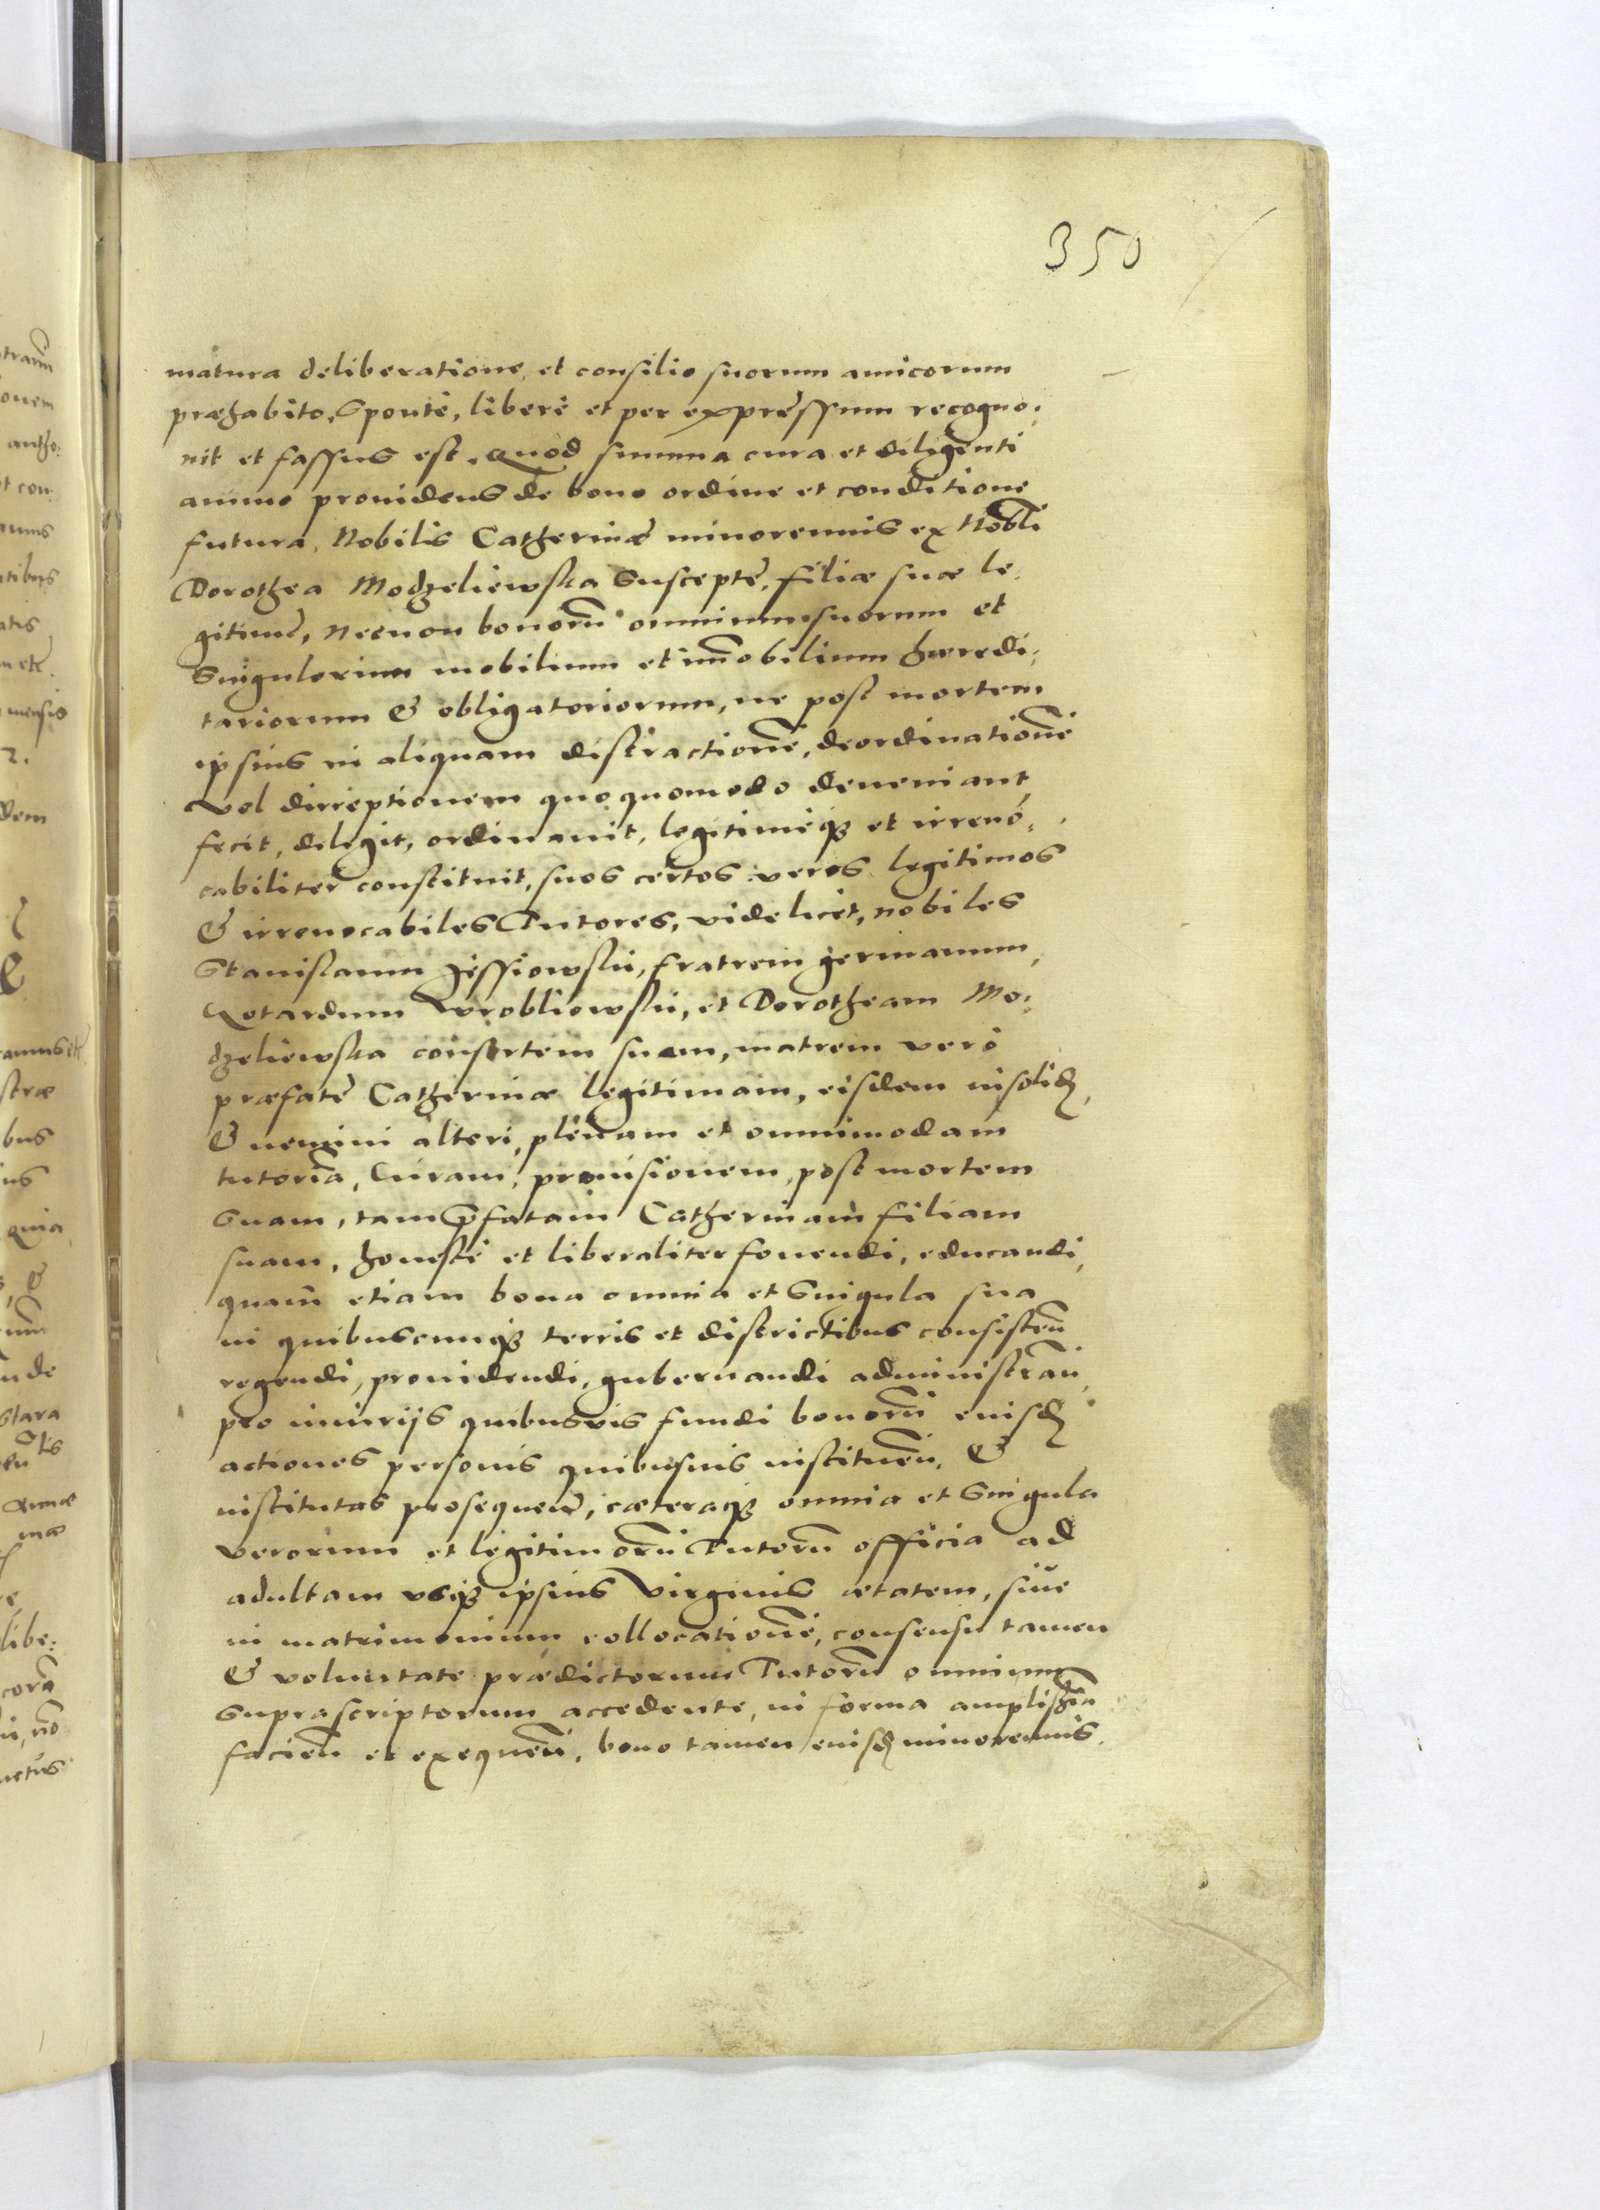 350
matura deliberatione, et consilio suorum amicorum
præhabito, Sponte, libere et per expressum recogno:
uit et fassus est. Quod summa cura et diligenti
animo prouidens de bono ordine et conditione
futura, Nobilis Catherinæ minorennis ex Nobli
Dorothea Modzeliewska Suscepte, filiæ suæ le:
gitime, Necnon bonorũ omnium suorum et
Singulorium mobilium et imobilium hæredi:
tariorum & obligatoriorum, ne post mortem
ipsius in aliquam distractionẽ, deordinationẽ
Vel direptionem quoquomodo deueniant
fecit, delegit, ordinauit, legitimeqȝ et irreuo:
cabiliter constituit, suos certos veros legitimos
& irreuocabiles Tutores, videlicet, nobiles
Stanislaum fratrem germanum,
Gotardum Wrobliowskii, et Dorotheam Mo:
dzeliewska consortem suam, matrem vero
præfate Catherinæ legitimam, eisdem insolid,
& nemini alteri, plenam et omnimodam
tutoriã, Curam, prouisionem, post mortem
Suam, tam pfatam Catherinam filiam
suam, honeste et liberaliter fouendi, educandi,
quam etiam bona omnia et Singula sua
in quibuscumqȝ terris et districtibus consisteñ
regendi, prouidendi, gubernandi administrañ
pro iniurijs quibusuis fundi bonorũ eiusd
actiones personis quibusuis institueñ, &
institutas prosequeñ, cæteraqȝ omnia et Singula
verorum et legitimorũ Tutorũ officia ad
adultam vsqȝ ipsius Virginis ætatem, siue
in matrimonium collocationẽ, consensu tamen
& voluntate prædictorum Tutorũ omnium
Suprascriptorum accedente, in forma
facieñ et exequeñ, bono tamen eiusd minorennis.